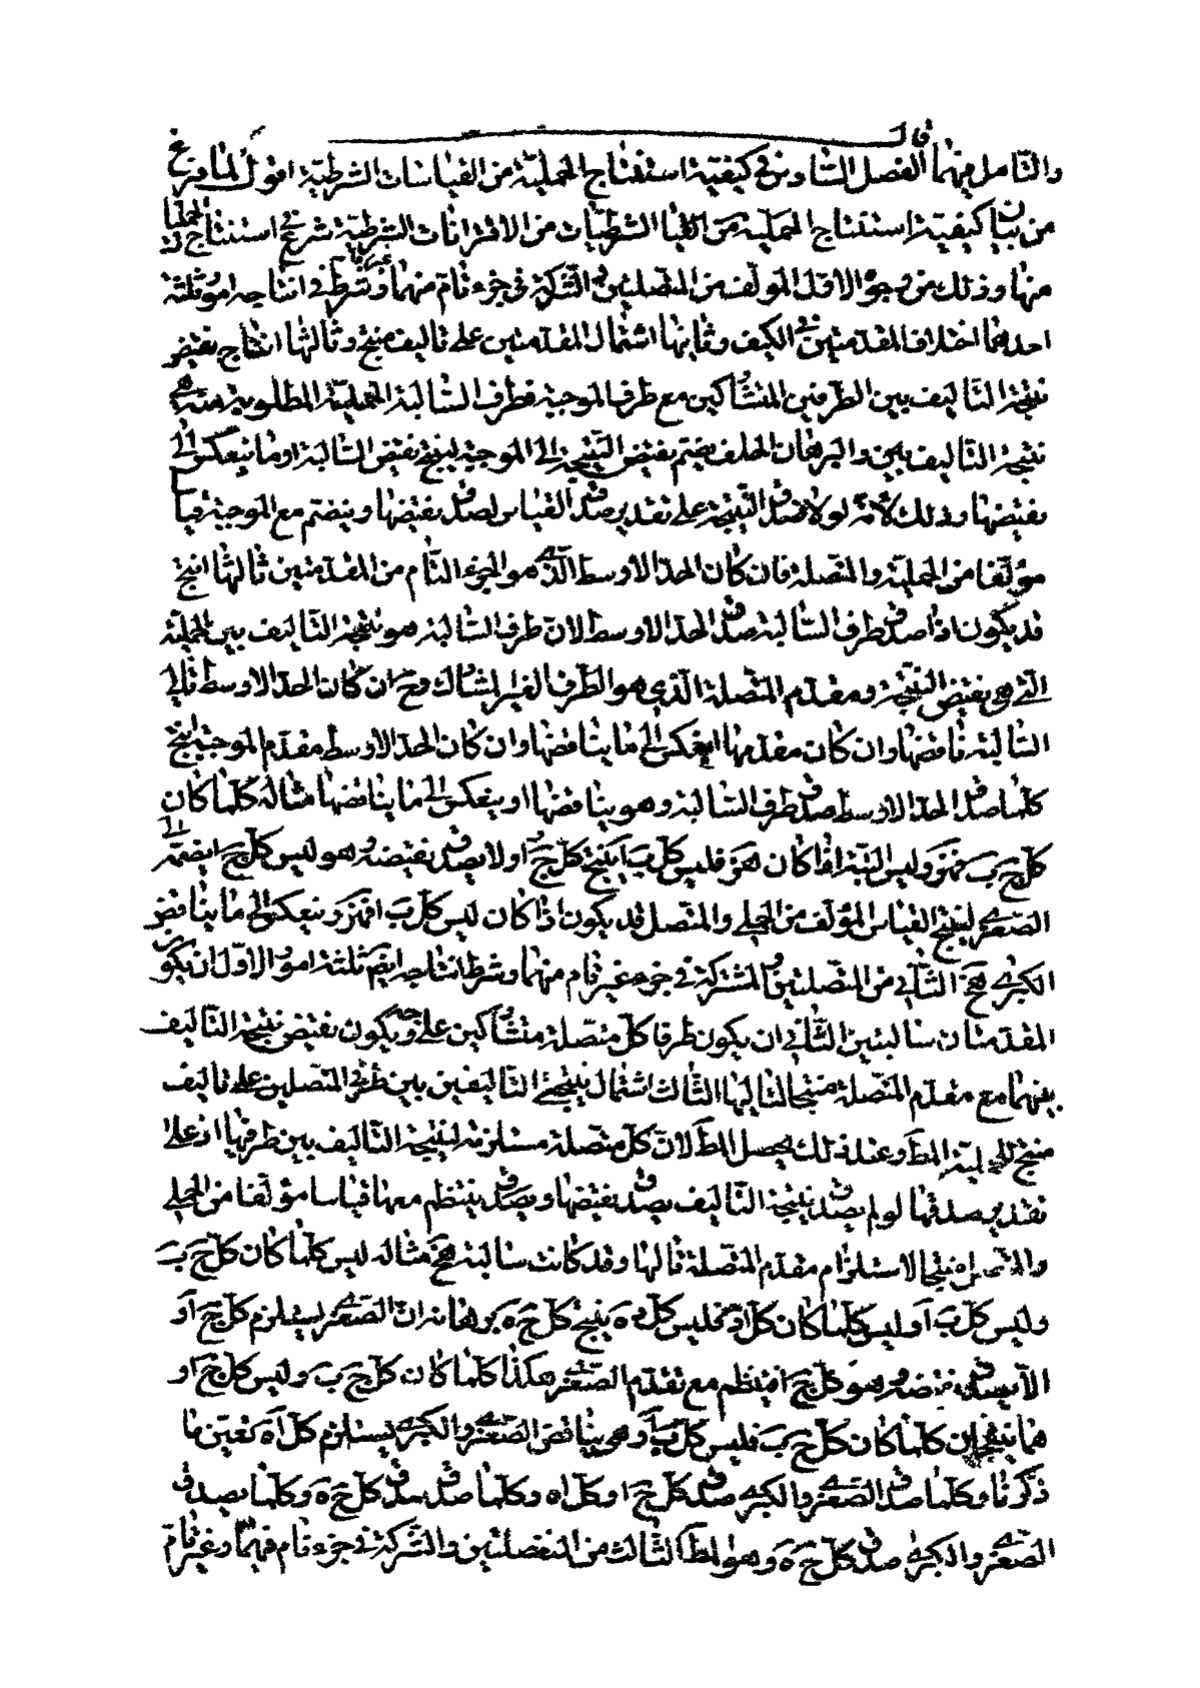 قال
والتامل فيهما الفصل السادس في كيفية استنتاج الحملية من القياسات الشرطية اقول لما فرغ
من بيان كيفية استنتاج الحملية من الشرطيات من الاقترانات الشرطية شرع في استنتاج الحمليات
منها وذلك من وجوه الاول المؤلف من المتصلتين والشركة في جزء تام منهما وشرط في انتاجه امور ثلثة
احدها اختلاف المقدمتين في الكيف وثانيها اشتمال المقدمتين على تاليف منتج وثالثها انتاج نقيض
نتيجة التاليف بين الطرفين المتشاركين مع طرف الموجبة فطرف السالبة الحملية المطلوبة منه هي
نتيجة التاليف بين والبرهان الخلف بضم نقيض النتيجة الى الموجبة لينتج نقيض السالبة او ما ينعكس الى
نقيضها وذلك لانه لولا صدق النتيجة على تقدير صدق القياس لصدق نقيضها وينضم مع الموجبة قياسا
مؤلفا من الحملية والمتصلة فان كان الحد الاوسط الذي هو الجزء التام من المقدمتين تاليها انتج
قد يكون اذا صدق طرف السالبة صدق الحد الاوسط لان طرف السالبة هو نتيجة التاليف بين الحملية
التي هي نقيض النتيجة ومقدم المتصلة الذي هو الطرف الغير المشارك وح ان كان الحد الاوسط تالي
السالبة ناقضها وان كان مقدمها انعكس الى ما يناقضها وان كان الحد الاوسط مقدم الموجبة انتج
كلما صدق الحد الاوسط صدق طرف السالبة وهو يناقضها او ينعكس الى ما يناقضها مثاله كلما كان
كل ج ب فهز وليس البتة اذا كان هز فليس كل ب ا ينتج كل ج ا او لا يصدق نقيضه وهو ليس كل ج ا يضم الى
الصغرى لينتج القياس المؤلف من الحملي والمتصل قد يكون اذا كان ليس كل ب ا فهز وينعكس الى ما يناقض
الكبرى هف الثاني من المتصلتين والمشتركة في جزء غير تام منهما وشرط انتاجه ايضا ثلثة امور الاول ان يكون
المقدمتان سالبتين الثاني ان يكون طرفا كل متصلة متشاركين على وجه ويكون نقيض نتيجة التاليف
بينهما مع مقدم المتصلة منتجا لتاليها الثالث اشتمال نتيجتي التاليفين بين طرفي المتصلين على تاليف
منتج للحملية المط وعند ذلك يحصل المط لان كل متصلة مستلزمة لنتيجة التاليف بين طرفيها اذ على
تقدير صدقها لو لم يصدق نتيجة التاليف يصدق نقيضها ويصدق ينتظم معها قياسا مؤلفا من الحملي
والمتصل منتجا لاستلزام مقدم المتصلة تاليها وقد كانت سالبة هف مثاله ليس كلما كان كل ج ب
وليس كل ب ا وليس كلما كان كل ا د فليس كل د ه ينتج كل ج ه برهانه ان الصغرى يستلزم كل ج ا و
الا يصدق نقيضه وهو كل ج ا فينظم مع تقدم الصغرى هكذا كلما كان كل ج ب وليس كل ج ا و
هما ينتجان كلما كان كل ج ب فليس كل ب ا وهي يناقض الصغرى والكبرى يستلزم كل ا ه بعين ما
ذكرنا وكلما صدق الصغرى والكبرى صدق كل ج ا وكل ا ه وكلما صدق صدق كل ج ه وكلما يصدق
الصغرى والكبرى صدق كل ج ه وهو المط الثالث من المنفصلتين والشركة في جزء تام فيهما وغير تام